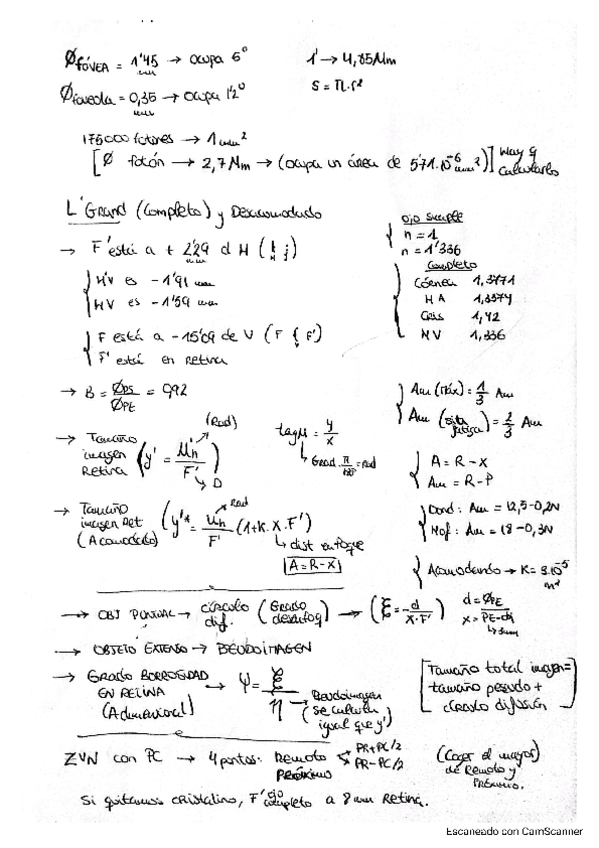 Ø FÓVEA = 1'45 mm → ocupa 5°
1' → 4,85 Mm
Ø foveola = 0,35 mm → ocupa 1'2°
S = π·r²
175000 fotones → 1 mm²
[Ø fotón → 2,7 Nm → (ocupa un área de 5'71·10⁻⁶ mm²)] Hay q calcularlo
L'Grand (Completo) y Desacomodado
ojo simple
n = 1
n = 1'336
→ F' está a +
d H
H'V es -1'91 mm
HV es -1'59 mm
Completo
Córnea 1,3771
HA 1,3374
Cris 1,42
HV 1,336
F está a -15'09 de V (F F')
F' está en retina
→ B = ØPS / ØPE = 0,92
Am (Máx) = 1/3 Am
Am = 2/3 Am
→ Tamaño imagen Retina (y' = / F') (Rad)
→ D
y / x
Grad · π / = rad
A = R - X
Am = R - P
→ Tamaño imagen Ret (Acomodado) (y'* = / F' (1+K·X·F') Rad
→ dist enfoque
A = R - X
Dond: Am = 12,5 - 0,2N
Hof: Am = 18 - 0,3N
Acomodando → K =
→ OBJ PUNTUAL → círculo dif. (Grado desenfoq) → (ξ = -d / X·F')
d = ØPE
→ OBJETO EXTENSO → PSEUDOIMAGEN
→ GRADO BORROSIDAD EN RETINA (Adimensional) → Ψ = ξ / η
→ Pseudoimagen (se calcula igual que y')
[Tamaño total imagen = tamaño pseudo + círculo difusión]
ZVN con PC → 4 puntos: Remoto Próximo
PR + PC/2
PR - PC/2
(Coger el mayor) de Remoto y Próximo.
Si quitamos cristalino, F' ojo completo a 8 mm Retina.
Escaneado con CamScanner